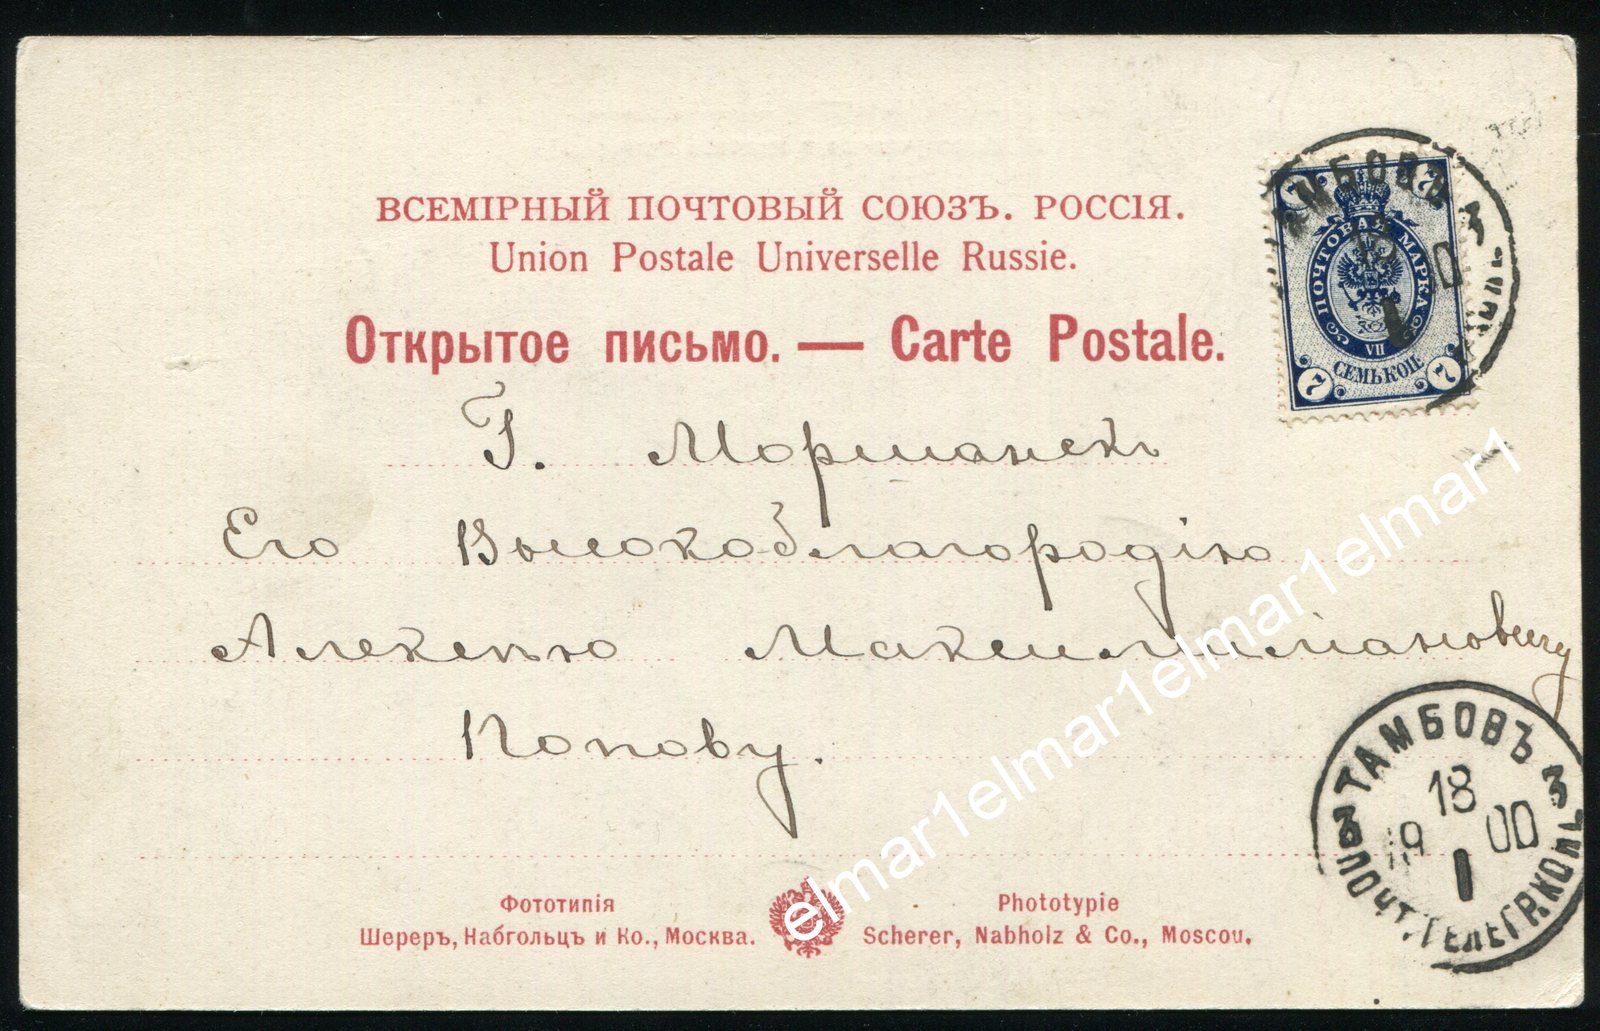 ВСЕМІРНЫЙ ПОЧТОВЫЙ СОЮЗЪ. РОССІЯ.
Union Postale Universelle Russie.
Открытое письмо. — Carte Postale.
ПОЧТОВАЯ МАРКА
VII
СЕМЬ КОП.
7 7 7 7
ТАМБОВЪ 3
18
1
Г. Моршанскъ
Его Высокоблагородію
Алексѣю Максимилиановичу
Попову.
ТАМБОВЪ
18
19 00
1
3 ПОЧТ. ТЕЛЕГР. КОН. 3
Фототипія
Шереръ, Набгольцъ и Ко., Москва.
Phototypie
Scherer, Nabholz & Co., Moscou.
elmar1elmar1elmar1elmar1elmar1